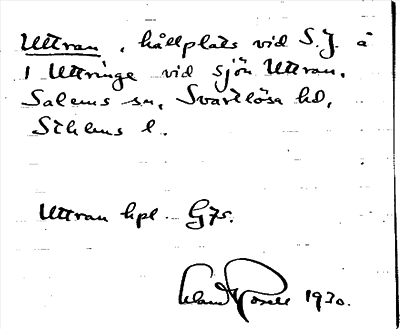 Uttran, hållplats vid S.J. å
1 Uttringe vid sjön Uttran,
Salems sn, Svartlösa hd,
Sthlms l.
Uttran hpl G75.
1930.